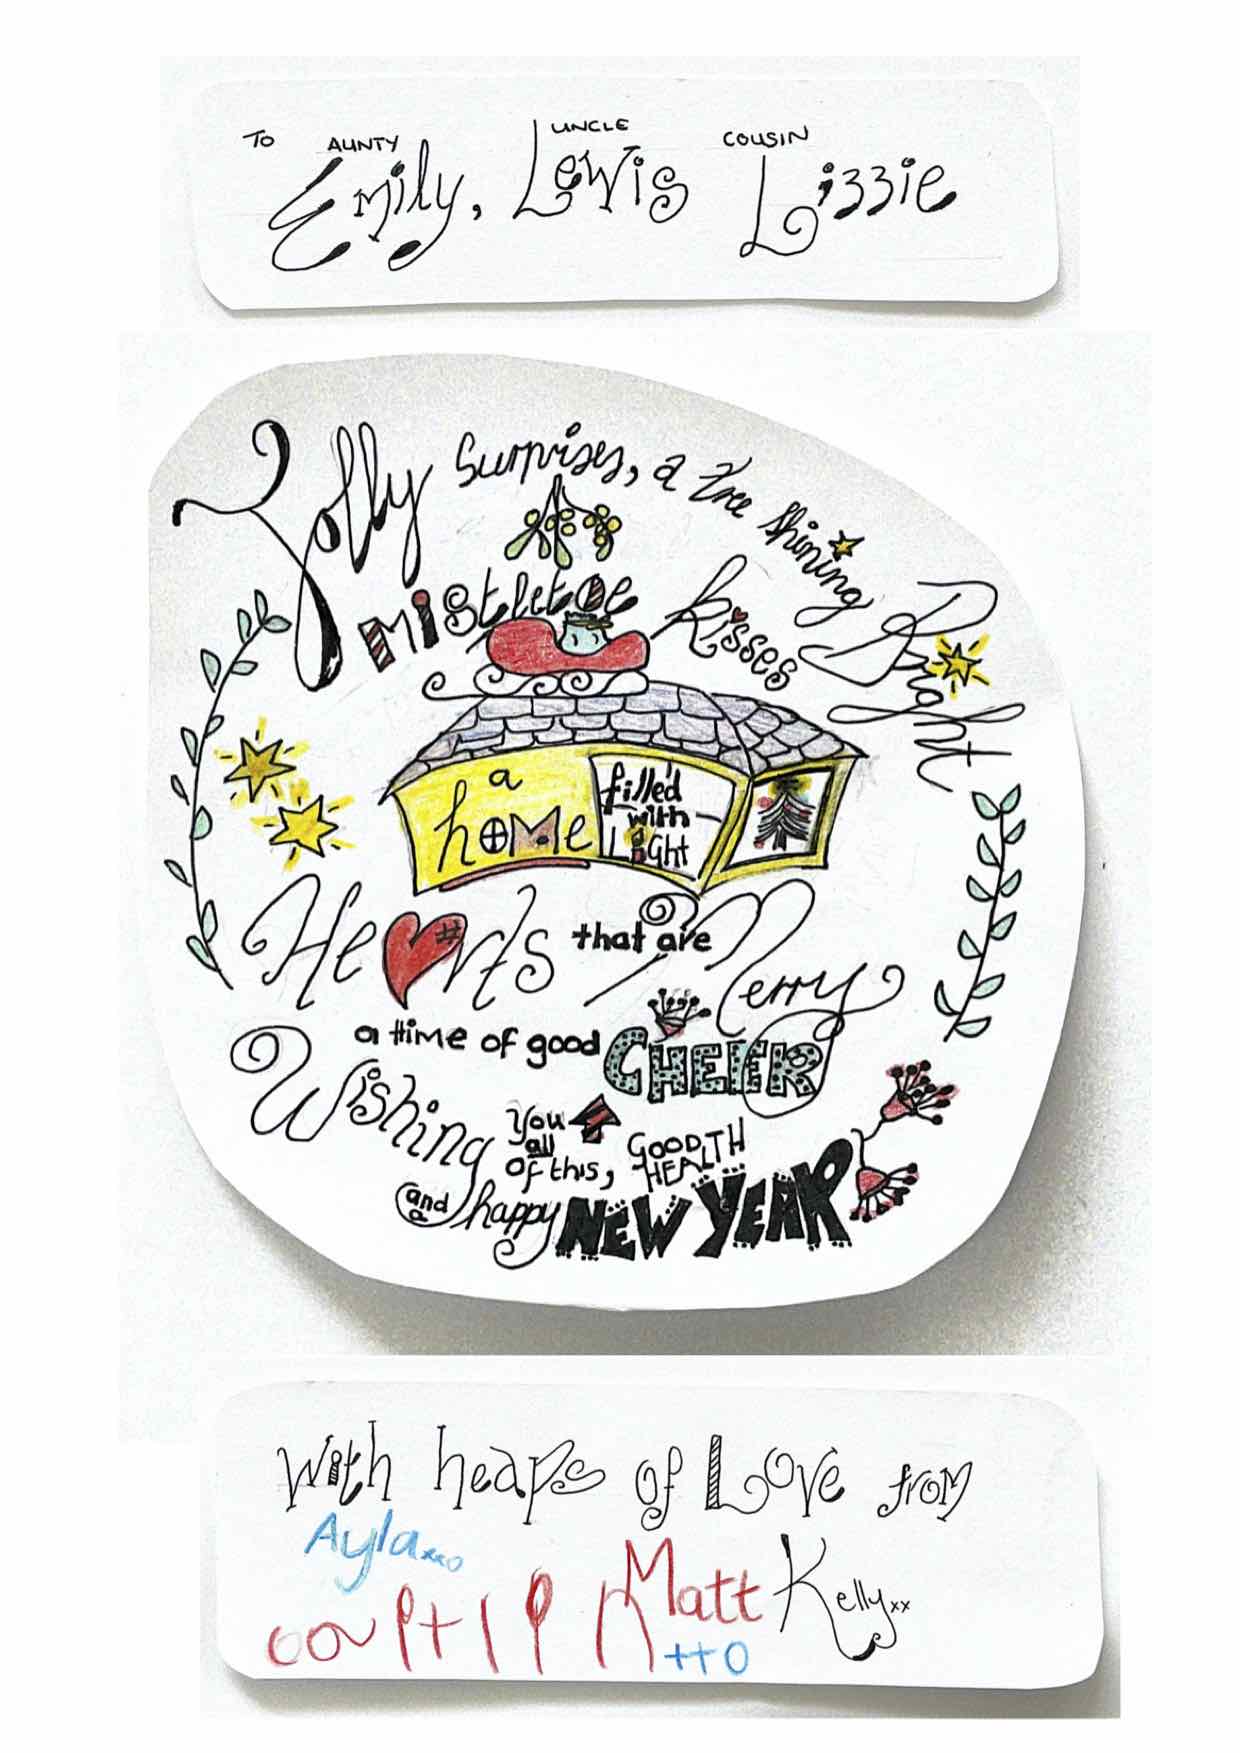 To AUNTY Emily, UNCLE Lewis COUSIN Lizzie
Jolly Surprises, a tree shining Bright
mistletoe kisses
a home filled with Light
Hearts that are Merry
a time of good CHEER
Wishing you all of this, GOOD HEALTH
and a happy NEW YEAR
With heaps of Love from
Ayla xxo
Matt Kelly xx